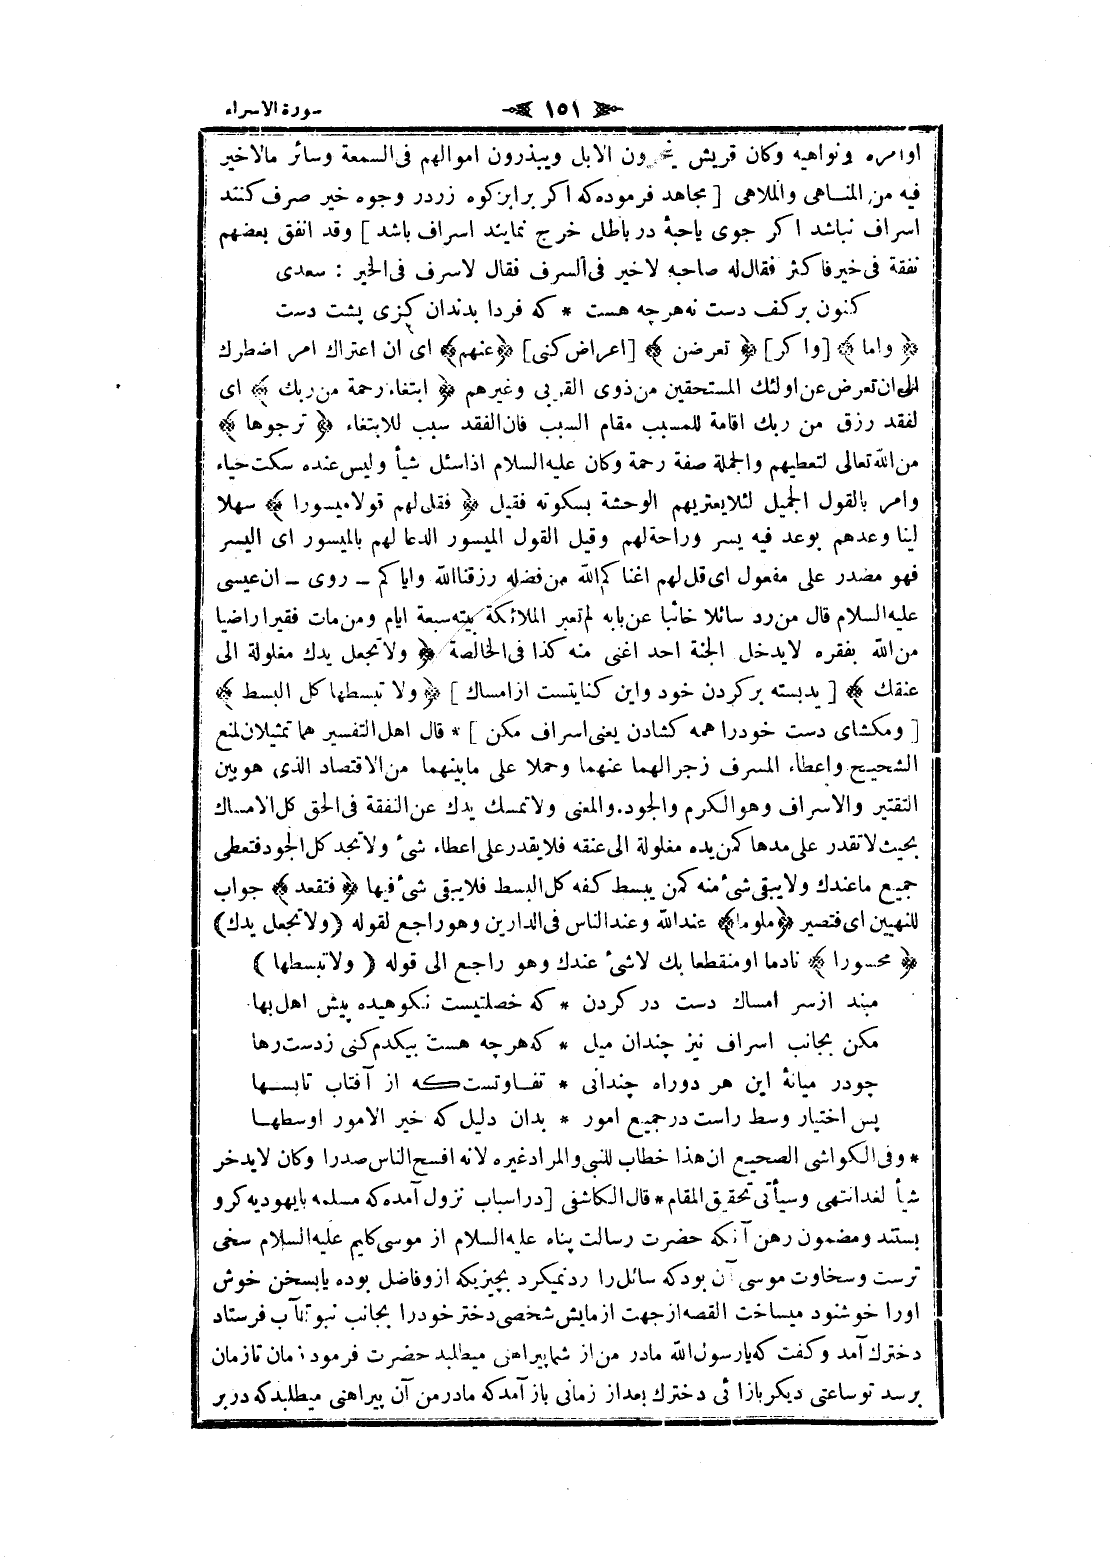 سورة الاسراء ١٥١
اوامره ونواهيه وكان قريش ينحرون الابل ويبذرون اموالهم فى السمعة وسائر مالاخير
فيه من المناهى والملاهى [ مجاهد فرموده كه اكر برابر كوه زردر وجوه خير صرف كنند
اسراف نباشد اكر جوى ياحبة درباطل خرج نمايند اسراف باشد ] وقد انفق بعضهم
نفقة فى خير فاكثر فقال له صاحبه لاخير فى السرف فقال لاسرف فى الخير : سعدى
كنون بركف دست نه هرچه هست * كه فردا بدندان كزى پشت دست
﴿ واما ﴾ [ واكر ] ﴿ تعرضن ﴾ [ اعراض كنى ] ﴿ عنهم ﴾ اى ان اعتراك امر اضطرك
الى ان تعرض عن اولئك المستحقين من ذوى القربى وغيرهم ﴿ ابتغاء رحمة من ربك ﴾ اى
لفقد رزق من ربك اقامة للمسبب مقام السبب فان الفقد سبب للابتغاء ﴿ ترجوها ﴾
من الله تعالى لتعطيهم والجملة صفة رحمة وكان عليه السلام اذاسئل شيأ وليس عنده سكت حياء
وامر بالقول الجميل لئلا يعتريهم الوحشة بسكوته فقيل ﴿ فقل لهم قولا ميسورا ﴾ سهلا
لينا وعدهم بوعد فيه يسر وراحة لهم وقيل القول الميسور الدعا لهم بالميسور اى اليسر
فهو مصدر على مفعول اى قل لهم اغناكم الله من فضله رزقنا الله واياكم ـ روى ـ ان عيسى
عليه السلام قال من رد سائلا خائبا عن بابه لم تعبر الملائكة بيته سبعة ايام ومن مات فقيرا راضيا
من الله بفقره لايدخل الجنة احد اغنى منه كذا فى الخالصة ﴿ ولاتجعل يدك مغلولة الى
عنقك ﴾ [ يدبسته بركردن خود واين كنايتست ازامساك ] ﴿ ولا تبسطها كل البسط ﴾
[ ومكشاى دست خودرا همه كشادن يعنى اسراف مكن ] * قال اهل التفسير هما تمثيلان لمنع
الشحيح واعطاء المسرف زجرالهما عنهما وحملا على مابينهما من الاقتصاد الذى هوبين
التقتير والاسراف وهو الكرم والجود. والمعنى ولاتمسك يدك عن النفقة فى الحق كل الامساك
بحيث لاتقدر على مدها كمن يده مغلولة الى عنقه فلايقدر على اعطاء شئ ولاتجد كل الجود فتعطى
جميع ماعندك ولايبقى شئ منه كمن يبسط كفه كل البسط فلايبقى شئ فيها ﴿ فتقعد ﴾ جواب
للنهيين اى فتصير ﴿ ملوما ﴾ عند الله وعند الناس فى الدارين وهو راجع لقوله ( ولاتجعل يدك )
﴿ محسورا ﴾ نادما اومنقطعا بك لاشئ عندك وهو راجع الى قوله ( ولاتبسطها )
مبند ازسر امساك دست در كردن * كه خصلتيست نكوهيده پيش اهل بها
مكن بجانب اسراف نيز چندان ميل * كه هرچه هست بيكدم كنى زدست رها
چودر ميانۀ اين هر دوراه چندانى * تفاوتست كه از آفتاب تابسها
پس اختيار وسط راست درجميع امور * بدان دليل كه خير الامور اوسطها
* وفى الكواشى الصحيح ان هذا خطاب للنبى والمراد غيره لانه افسح الناس صدرا وكان لايدخر
شيأ لغد انتهى وسيأتى تحقيق المقام * قال الكاشفى [ دراسباب نزول آمده كه مسلمه بايهوديه كرو
بستند ومضمون رهن آنكه حضرت رسالت پناه عليه السلام از موسى كليم عليه السلام سخى
ترست وسخاوت موسى آن بودكه سائل را ردنميكرد بچيزيكه ازو فاضل بوده يابسخن خوش
اورا خوشنود ميساخت القصه ازجهت ازمايش شخصى دختر خودرا بجانب نبوتمآب فرستاد
دخترك آمد وكفت كه يارسول الله مادر من از شما پيراهنى ميطلبد حضرت فرمود زمان تازمان
برسد توساعتى ديكر بازا ئى دخترك بعداز زمانى بازآمدكه مادرمن آن پيراهنى ميطلبدكه دربر